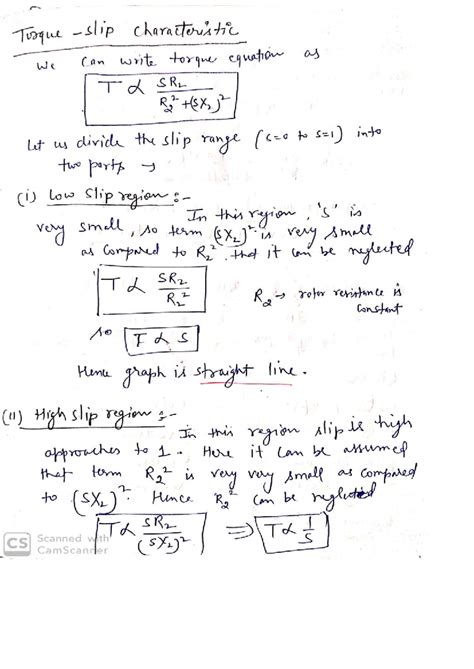 Torque - slip characteristic
we can write torque equation as
T ∝ SR₂ / R₂² + (SX₂)²
Let us divide the slip range (s=0 to s=1) into
two parts →
(i) Low slip region :-
In this region, 's' is
very small, so term (SX₂)² is very small
as compared to R₂², that it can be neglected
T ∝ SR₂ / R₂²
R₂ → rotor resistance is
constant
so T ∝ S
Hence graph is straight line.
(ii) High slip region :-
In this region slip is high
approaches to 1. Here it can be assumed
that term R₂² is very very small as compared
to (SX₂)². Hence R₂² can be neglected
T ∝ SR₂ / (SX₂)² ⇒ T ∝ 1/S
CS Scanned with
CamScanner